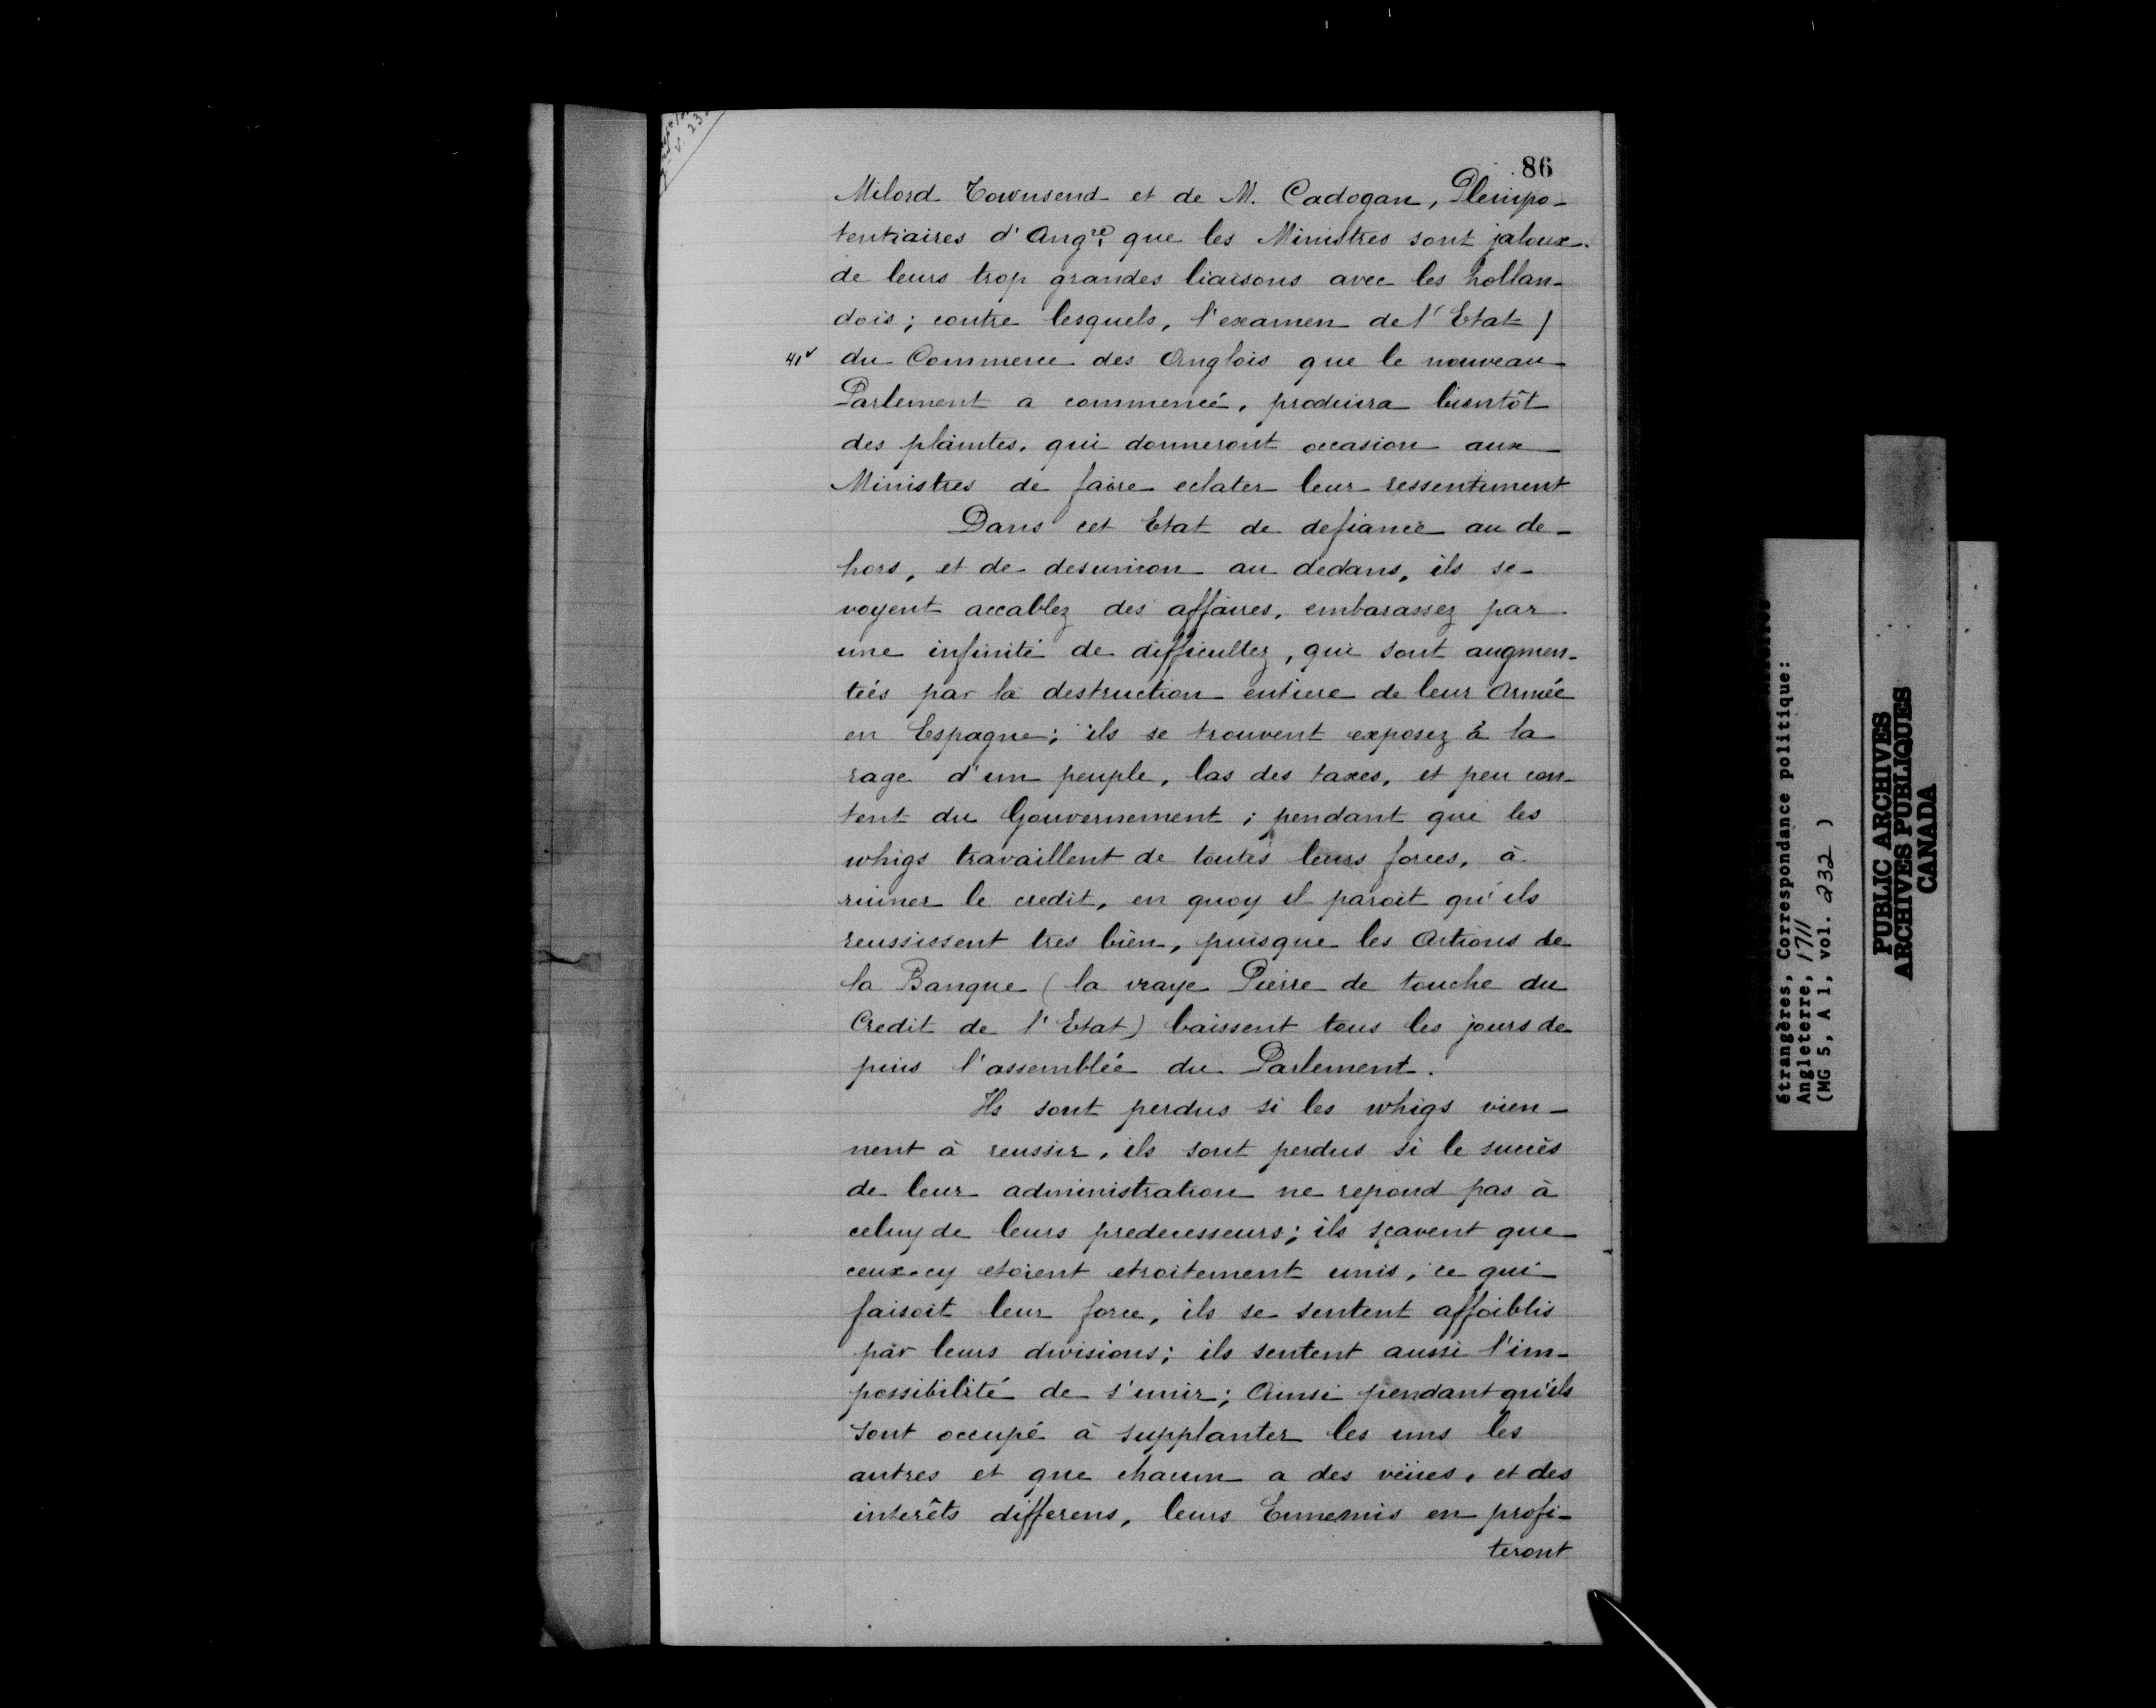 86
Milord Townsend et de M. Cadogan, Plenipo-
tentiaires d'Angre, que les Ministres sont jaloux
de leurs trop grandes liaisons avec les hollan-
dois; contre lesquels, l'examen de l'Etat /
41v du Commerce des Anglois que le nouveau
Parlement a commencé, produira bientôt
des plaintes, qui donneront occasion aux
Ministres de faire eclater leur ressentiment
Dans cet Etat de defiance au de-
hors, et de desunion au dedans, ils se
voyent accablez des affaires, embarassez par
une infinité de difficultez, qui sont augmen-
teés par la destruction entiere de leur Armée
en Espagne; ils se trouvent exposez à la
rage d'un peuple, las des taxes, et peu con-
tent du Gouvernement; pendant que les
whigs travaillent de toutes leurs forces, à
ruiner le credit, en quoy il paroit qu'ils
reussissent tres bien, puisque les Actions de
la Banque (la vraye Pierre de touche du
Credit de l'Etat) baissent tous les jours de
puis l'assemblée du Parlement.
Ils sont perdus si les whigs vien-
nent à reussir, ils sont perdus si le succès
de leur administration ne repond pas à
celuy de leurs predecesseurs; ils sçavent que
ceux-cy etoient etroitement unis, ce qui
faisoit leur force, ils se sentent affoiblis
par leurs divisions; ils sentent aussi l'im-
possibilité de s'unir; Ainsi pendant qu'ils
sont occupé à supplanter les uns les
autres et que chacun a des veües, et des
interêts differens, leurs Ennemis en profi-
teront
étrangères, Correspondance politique:
Angleterre, 1711
(MG 5, A 1, vol. 232 )
PUBLIC ARCHIVES
ARCHIVES PUBLIQUES
CANADA